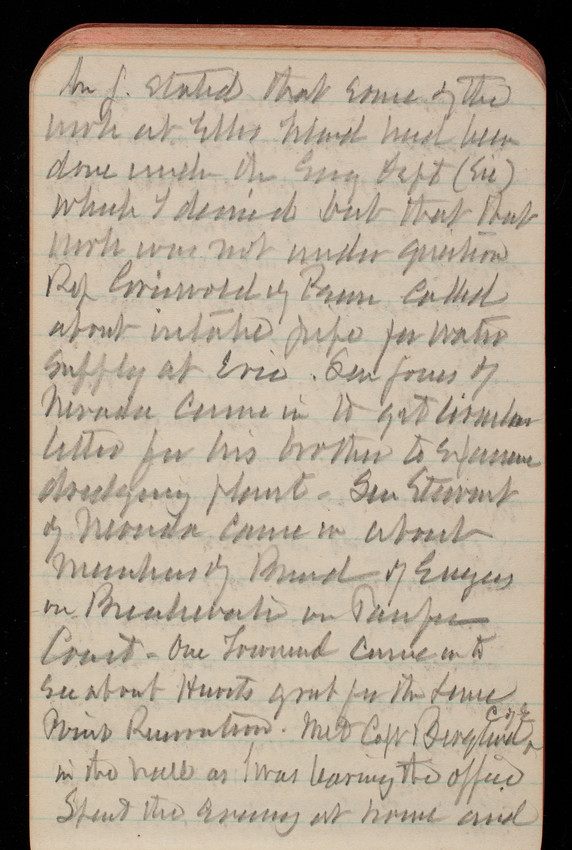 Mr J. stated that some of the
work at Ellis Island had been
done under the Eng Dept (Sic)
which I denied but that that
work was not under question
Rep Griswold of Penn called
about intake pipe for water
supply at Erie. Sen Jones of
Nevada came in to get circular
letter for his brother to examine
dredging plant - Sen Stewart
of Nevada came in about
Members of Board of Engrs
on Breakwater on Pacific
Coast - One Townsend came in to
see about Hunts grant for the Lime
Point Reservation. Met Capt Bergland C of E
in the hall as I was leaving the office
Spent the evening at home and